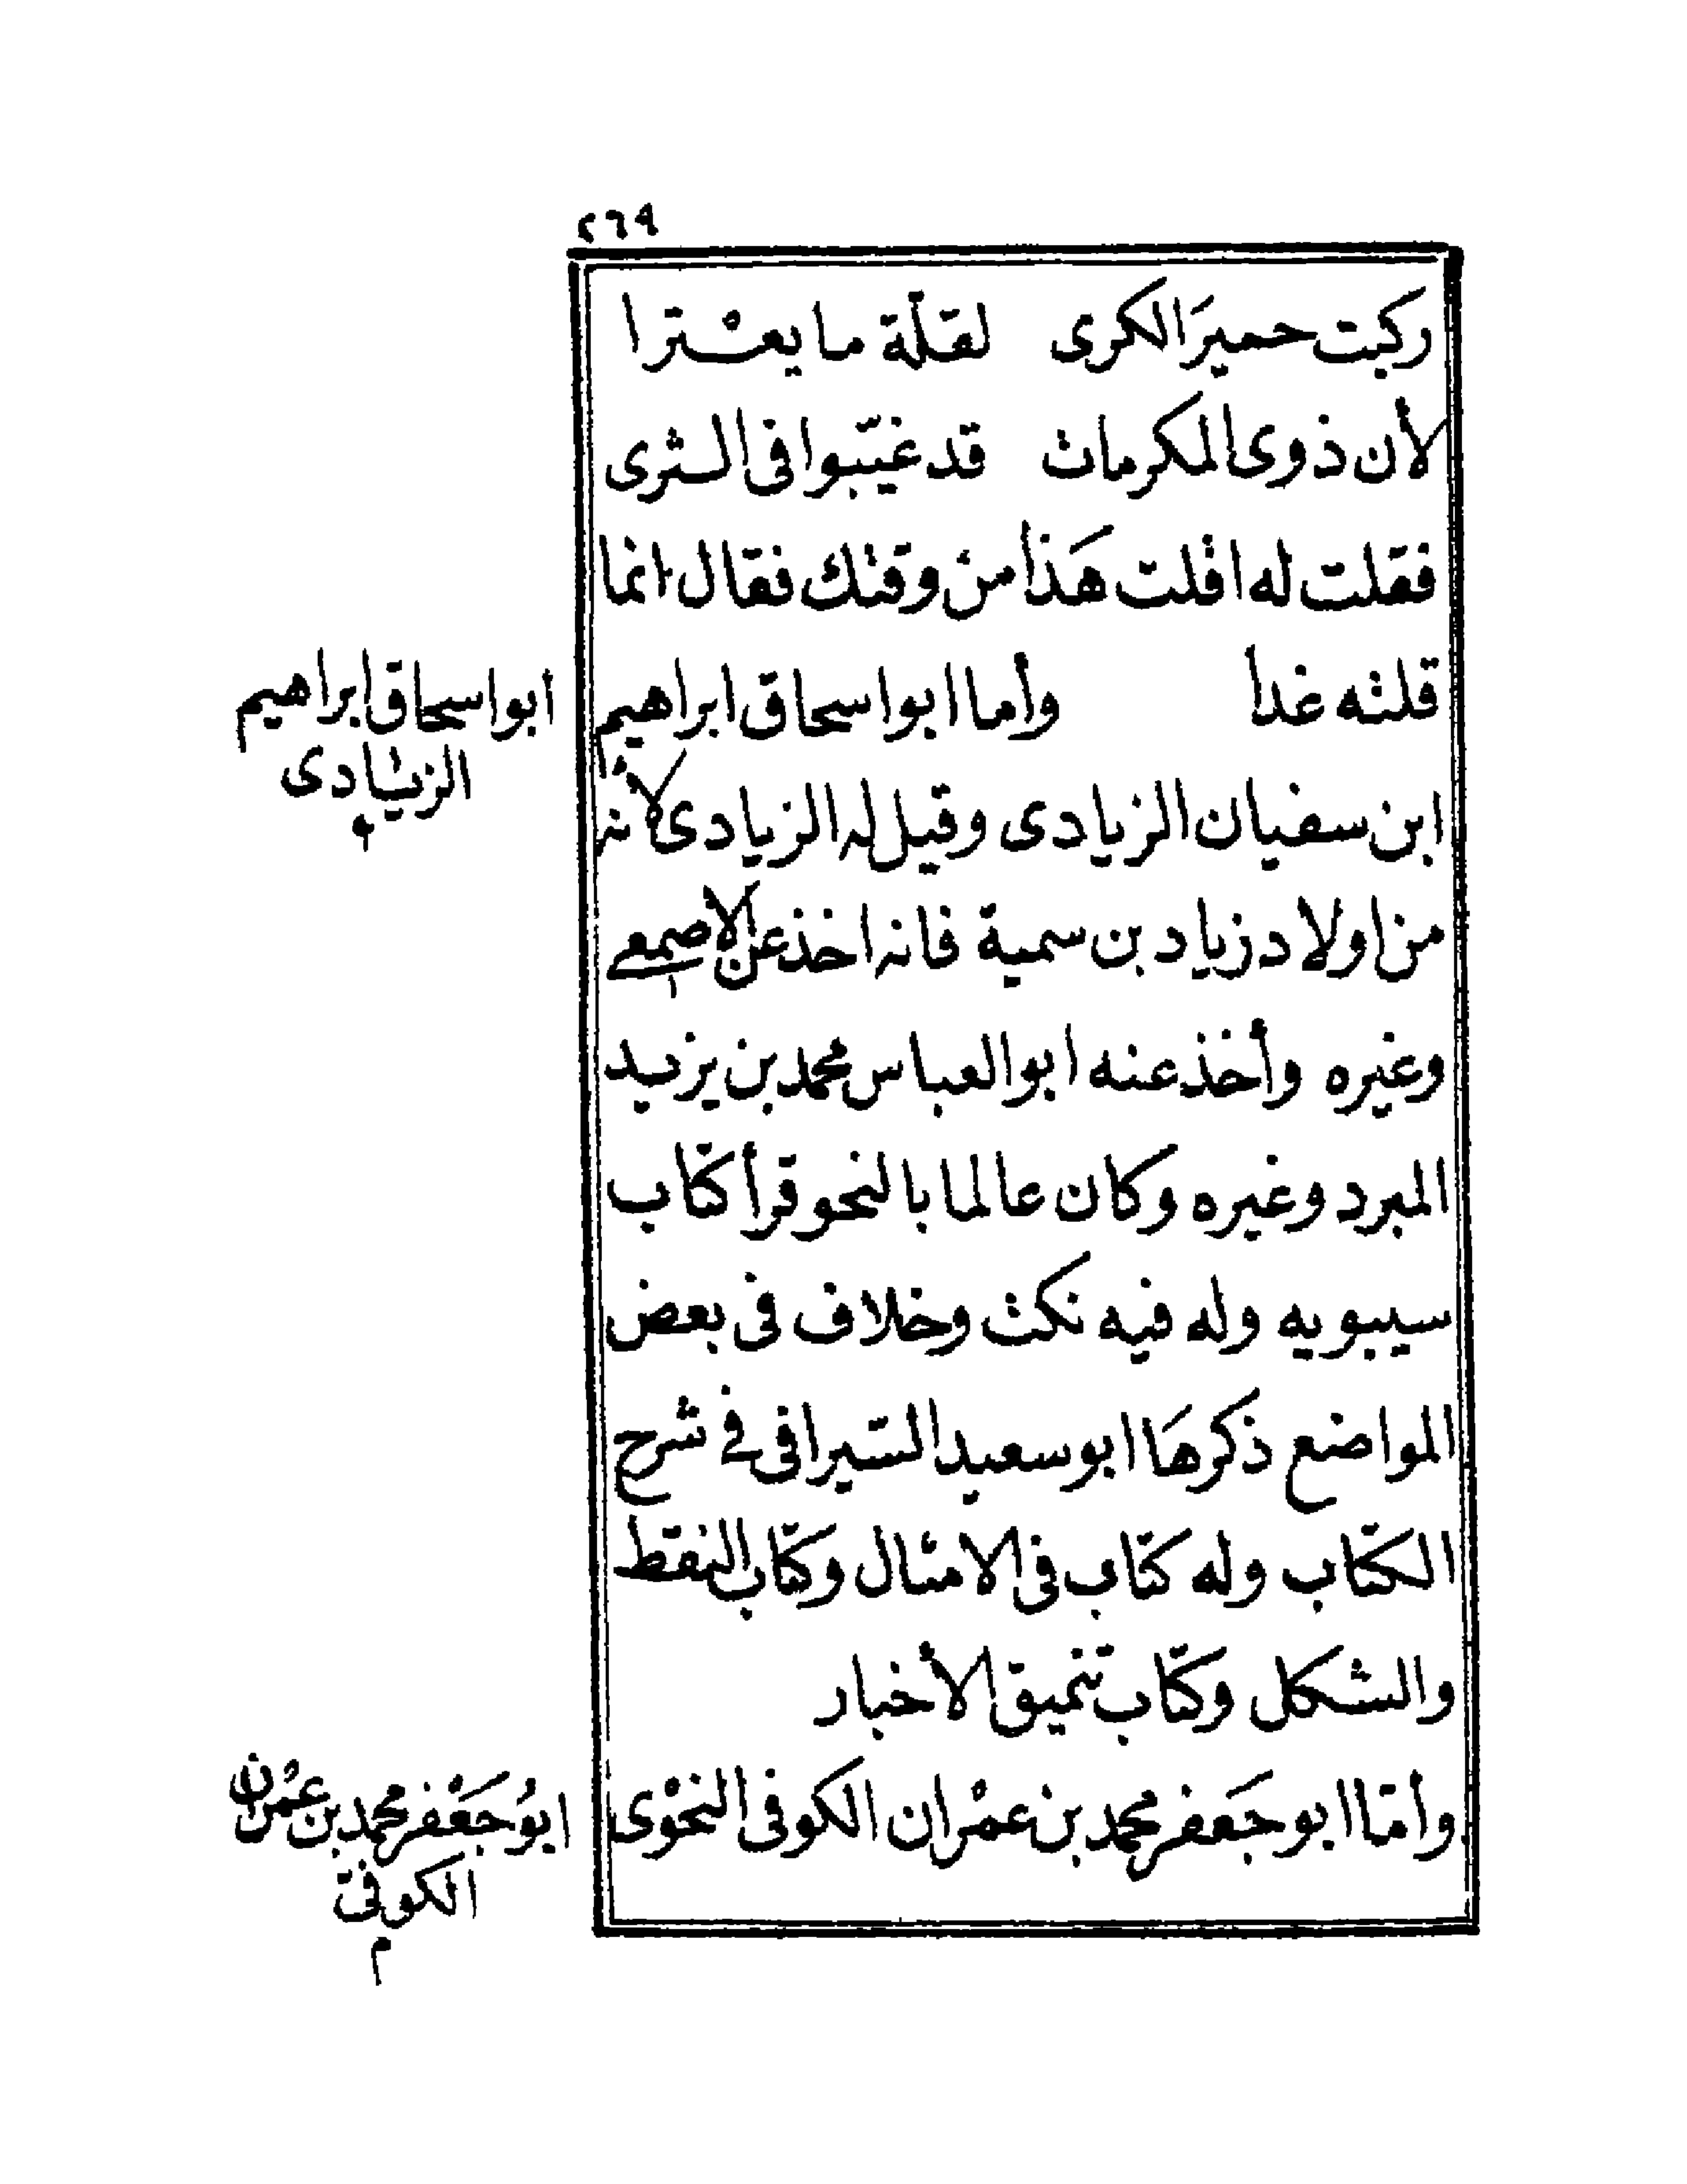 ٢٦٩
ركبت حميرَ الكرى لقلّة ما يعْترا
لأن ذوى المكرمات قد غيّبوا فى الثرى
فقلت له اقلت هَذا من وقتك فقال انما
قلته غدا وأما ابو اسحاق ابراهيم
ابو اسحاق ابراهيم
الزيادى
ابن سفيان الزيادى وقيل له الزيادى لأنه
من اولاد زياد بن سمية فانه اخذ عن الأصمعى
وغيره وأخذ عنه ابو العباس محمد بن يزيد
المبرد وغيره وكان عالما بالنحو قرأ كتاب
سيبويه وله فيه نكت وخلاف فى بعض
المواضع ذكرهَا ابو سعيد السّيرافى فى شرح
الكتاب وله كتاب فى الامثال وكتاب النقط
والشكل وكتاب تنميق الأخبار
وأمّا ابو جَعفر محمد بن عمْران الكوفى النحوْى
ابوُ جَعْفر محمد بن عمْران
الكوفى